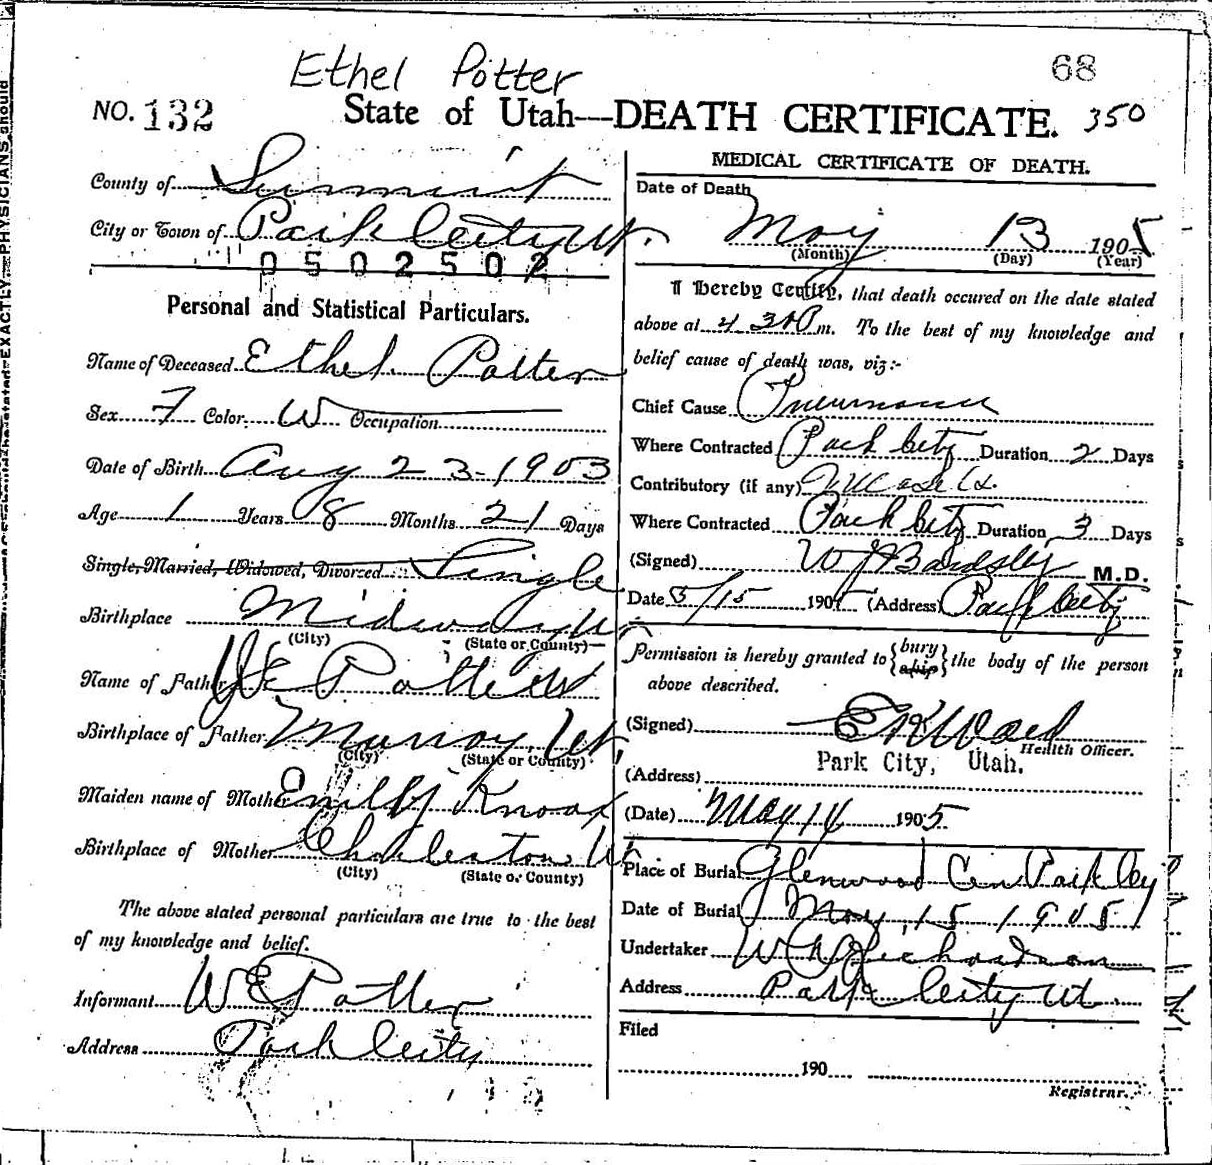 Ethel Potter
68
NO. 132 State of Utah—DEATH CERTIFICATE. 350
County of Summit
City or Town of Park City Ut.
0502502
Personal and Statistical Particulars.
Name of Deceased Ethel Potter
Sex F Color W Occupation
Date of Birth Aug 23-1903
Age 1 Years 8 Months 21 Days
Single, Married, Widowed, Divorced Single
Birthplace Midway Ut
(City) (State or County)
Name of Father W E Potter
Birthplace of Father Murray, Ut.
(City) (State or County)
Maiden name of Mother Emily Knox
Birthplace of Mother Charleston Ut
(City) (State or County)
The above stated personal particulars are true to the best
of my knowledge and belief.
Informant W E Potter
Address Park City
MEDICAL CERTIFICATE OF DEATH.
Date of Death
May 13 1905
(Month) (Day) (Year)
I Hereby Certify, that death occured on the date stated
above at 4 30 P m. To the best of my knowledge and
belief cause of death was, viz:-
Chief Cause Pneumonia
Where Contracted Park City Duration 2 Days
Contributory (if any) Measles.
Where Contracted Park City Duration 3 Days
(Signed) W J Bardsley M.D.
Date 5/15 1905 (Address) Park City
Permission is hereby granted to {bury ship} the body of the person
above described.
(Signed) E K Ward
Health Officer.
Park City, Utah.
(Address)
(Date) May 14 1905
Place of Burial Glenwood Cem Park City
Date of Burial May, 15, 1905
Undertaker W Richardson
Address Park City Ut.
Filed
190
Registrar.
PHYSICIANS should
stated EXACTLY.